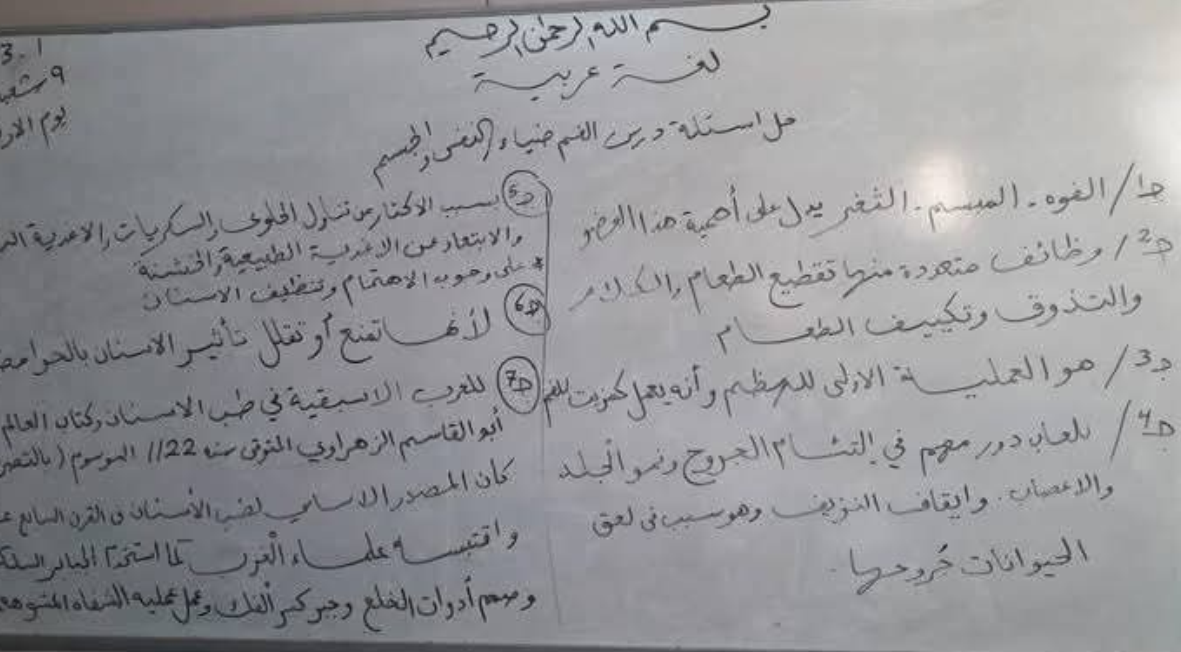 بسم الله الرحمن الرحيم
لغة عربية
حل اسئلة درس الفم ضياء النفس والجسم
3 - 1
٩ شعبا
يوم الار
ج1/ الفوه - المبسم - الثغر يدل على أهمية هذا العضو
ج2/ وظائف متعددة منها تقطيع الطعام والكلام
والتذوق وتكييف الطعام
ج3/ هو العملية الاولى للهضم وأنه يعمل كمزيت للفم
ج4/ للعاب دور مهم في إلتئام الجروح ونمو الجلد
والاعصاب. وايقاف النزيف وهو سبب في لعق
الحيوانات جروحها.
ج5 بسبب الاكثار من تناول الحلوى والسكريات والاغذية
والابتعاد عن الاغذية الطبيعية والخشنة
* على وجوب الاهتمام وتنظيف الاسنان
ج6 لأنها تمنع أو تقلل تأثير الاسنان بالحوامض
ج7 للعرب الاسبقية في طب الاسنان وكتاب العالم
أبو القاسم الزهراوي المتوفى سنة 22// الموسوم (بالتصر
كان المصدر الاساسي لطب الأسنان في القرن السابع
واقتبسه علماء الغرب كما استخدم
وصمم أدوات الخلع وجبر كسر الفك وعمل عملية الشفاه المشوهة